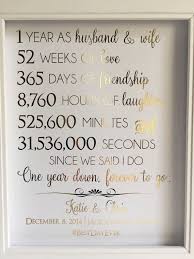 1 YEAR AS husband & wife
52 WEEKS OF love
365 DAYS OF friendship
8,760 HOURS OF laughter
525,600 MINUTES and
31,536,000 SECONDS
SINCE WE SAID I DO
One year down, forever to go.
Katie & Chris
DECEMBER 6, 2014
#BESTDAYEVER